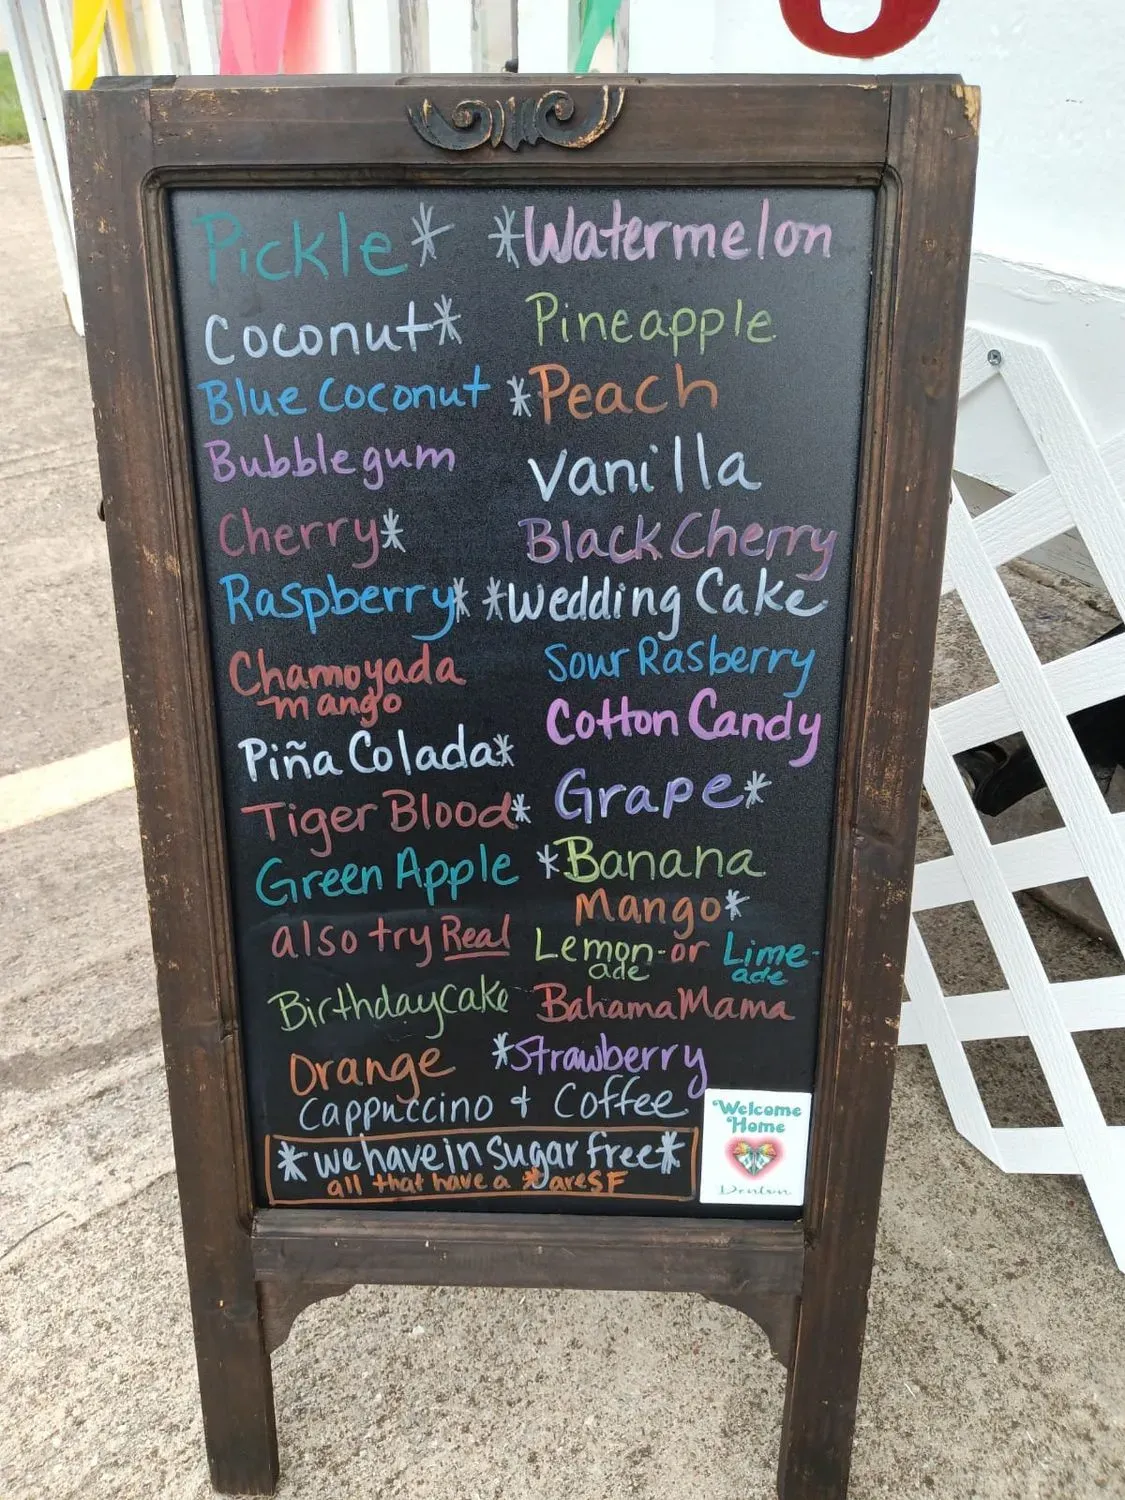 Pickle*
Coconut*
Blue Coconut
Bubblegum
Cherry*
Raspberry*
Chamoyada
mango
Piña Colada*
Tiger Blood*
Green Apple
also try Real
Birthdaycake
Orange
*Watermelon
Pineapple
*Peach
Vanilla
Black Cherry
*Wedding Cake
Sour Rasberry
Cotton Candy
Grape*
*Banana
Mango*
Lemon-or Lime-
ade ade
Bahama Mama
*Strawberry
Cappuccino + Coffee
*we have in Sugar free*
all that have a * are SF
Welcome
Home
Denton